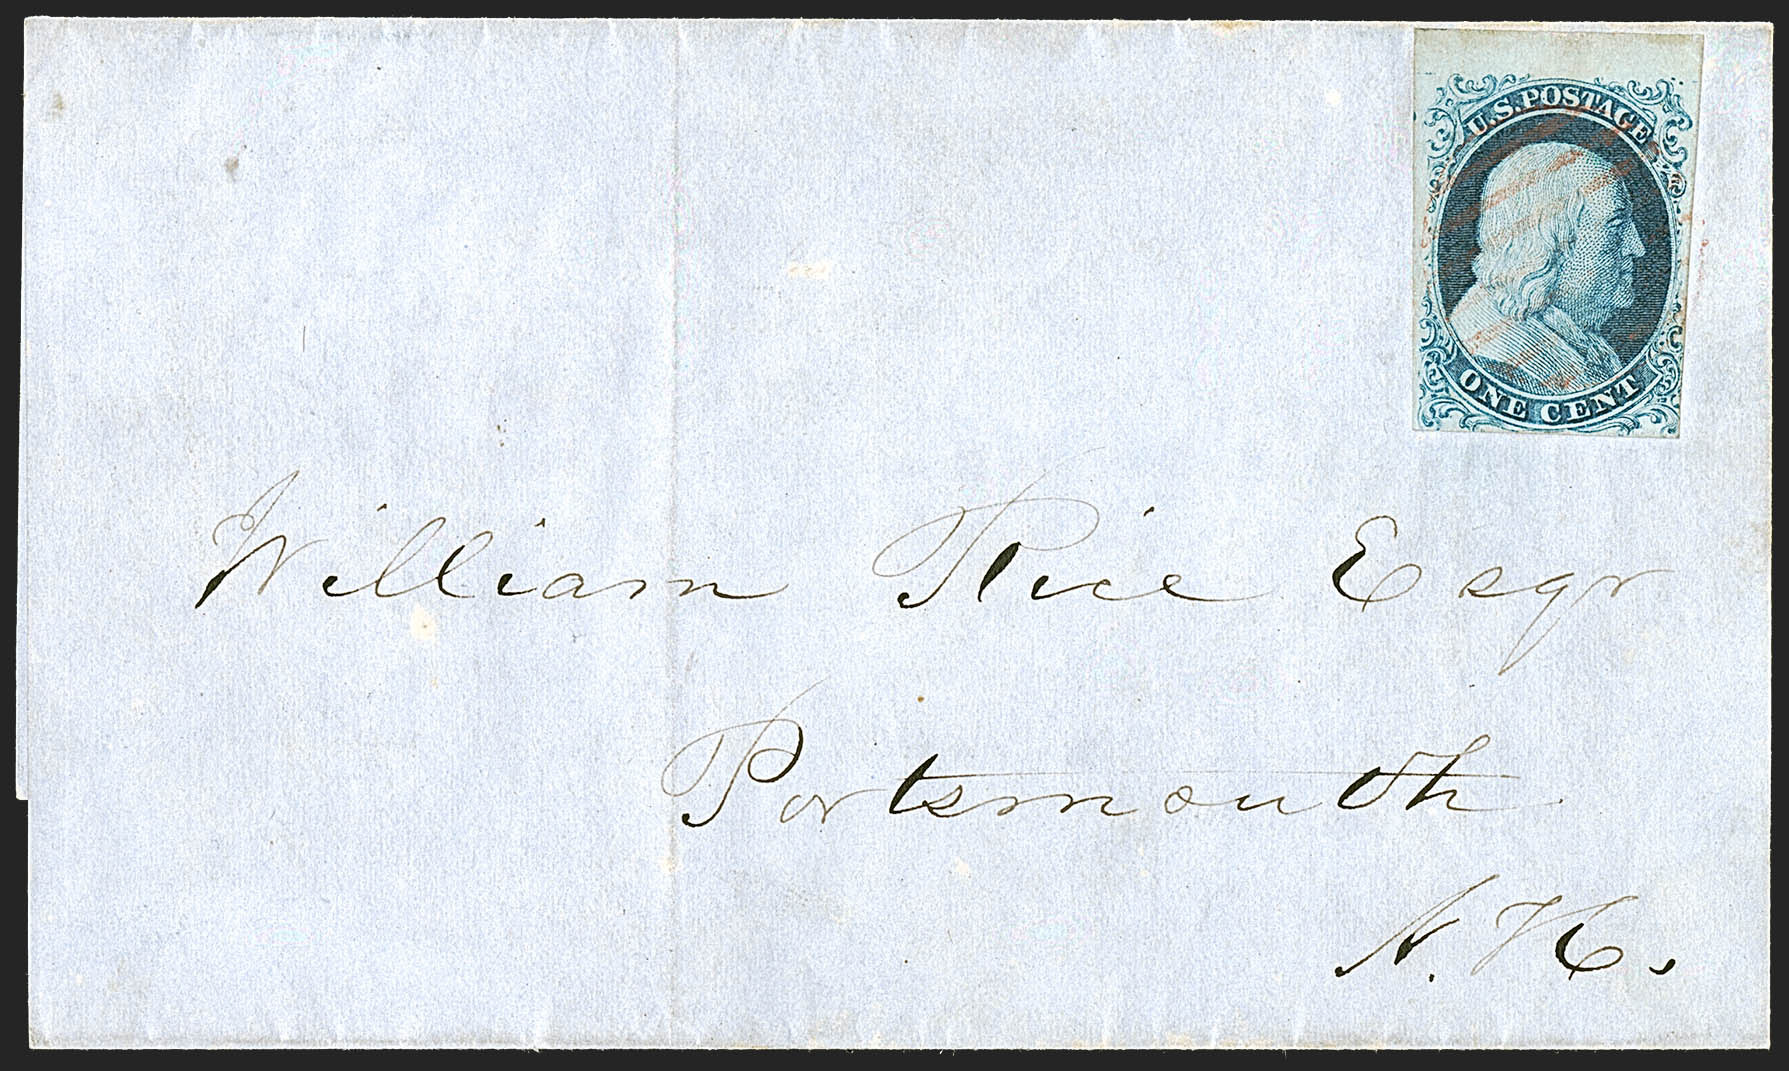 U.S. POSTAGE
ONE CENT
William Rice Esqr
Portsmouth
N. H.